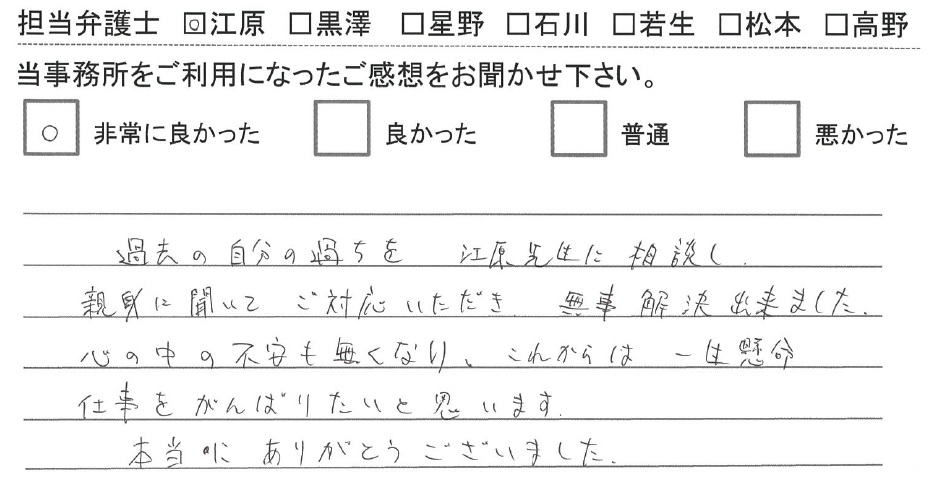 担当弁護士 ☑江原 □黒澤 □星野 □石川 □若生 □松本 □高野
当事務所をご利用になったご感想をお聞かせ下さい。
○ 非常に良かった □ 良かった □ 普通 □ 悪かった
過去の自分の過ちを 江原先生に相談し、
親身に聞いて ご対応いただき 無事解決出来ました。
心の中の不安も無くなり、これからは 一生懸命
仕事をがんばりたいと思います。
本当に ありがとうございました。